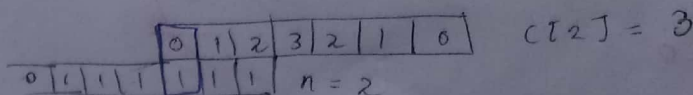 0 | 1 | 2 | 3 | 2 | 1 | 0 c[2] = 3
0 | 1 | 1 | 1 | 1 | 1 | 1 n = 2